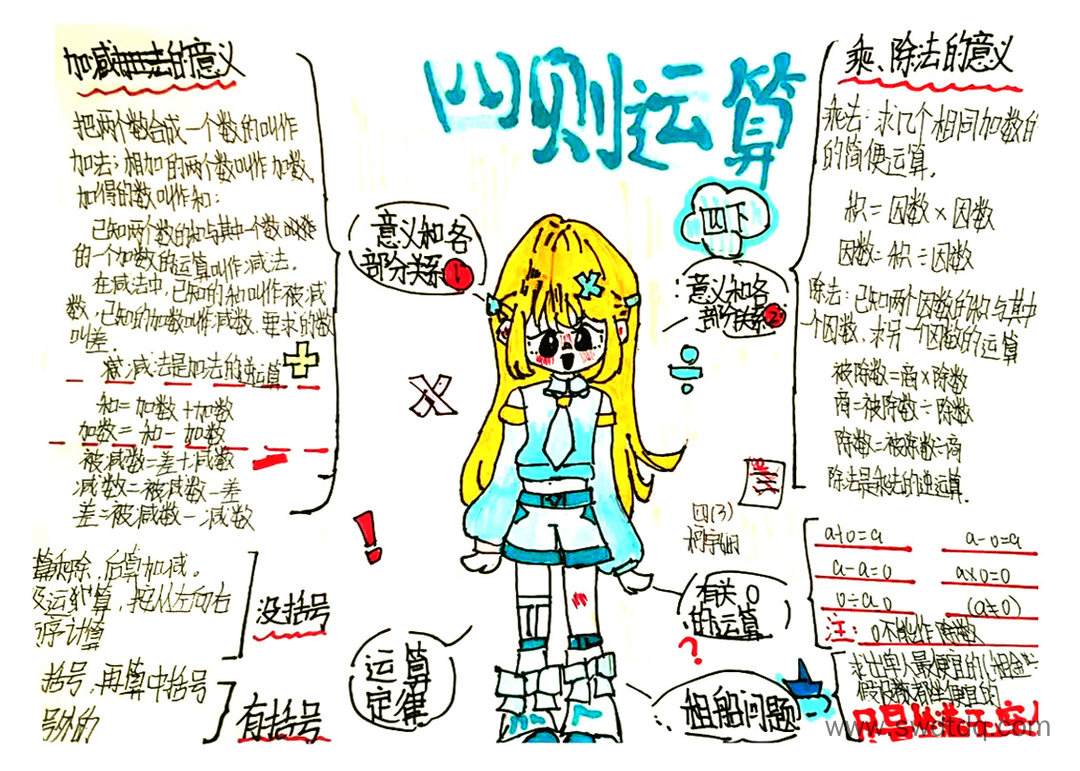 四则运算
四下
加减法的意义
把两个数合成一个数的叫作
加法;相加的两个数叫作加数,
加得的数叫作和:
已知两个数的和与其中一个数
的一个加数的运算叫作减法.
在减法中,已知的和叫作被减
数,已知的加数叫作减数,要求的数
叫差.
减法是加法的逆运算
和=加数+加数
加数=和-加数
被减数=差+减数
减数=被减数-差
差=被减数-减数
意义和各
部分关系1
乘、除法的意义
乘法:求几个相同加数的
的简便运算.
积=因数×因数
因数=积÷因数
除法:已知两个因数的积与其中
一个因数,求另一个因数的运算
被除数=商×除数
商=被除数÷除数
除数=被除数÷商
除法是乘法的逆运算.
意义和各
部分关系2
四(3)
算和除,后算加减.
算,把从左向右
序计算
没括号
括号,再算中括号
号外的
有括号
运算
定律
有关0
的运算
a+0=a
a-0=a
a-a=0
a×0=0
0÷a=0
(a≠0)
注:0不能作除数
租船问题
求出单人最便宜的(租金÷
www.swsdcq.com